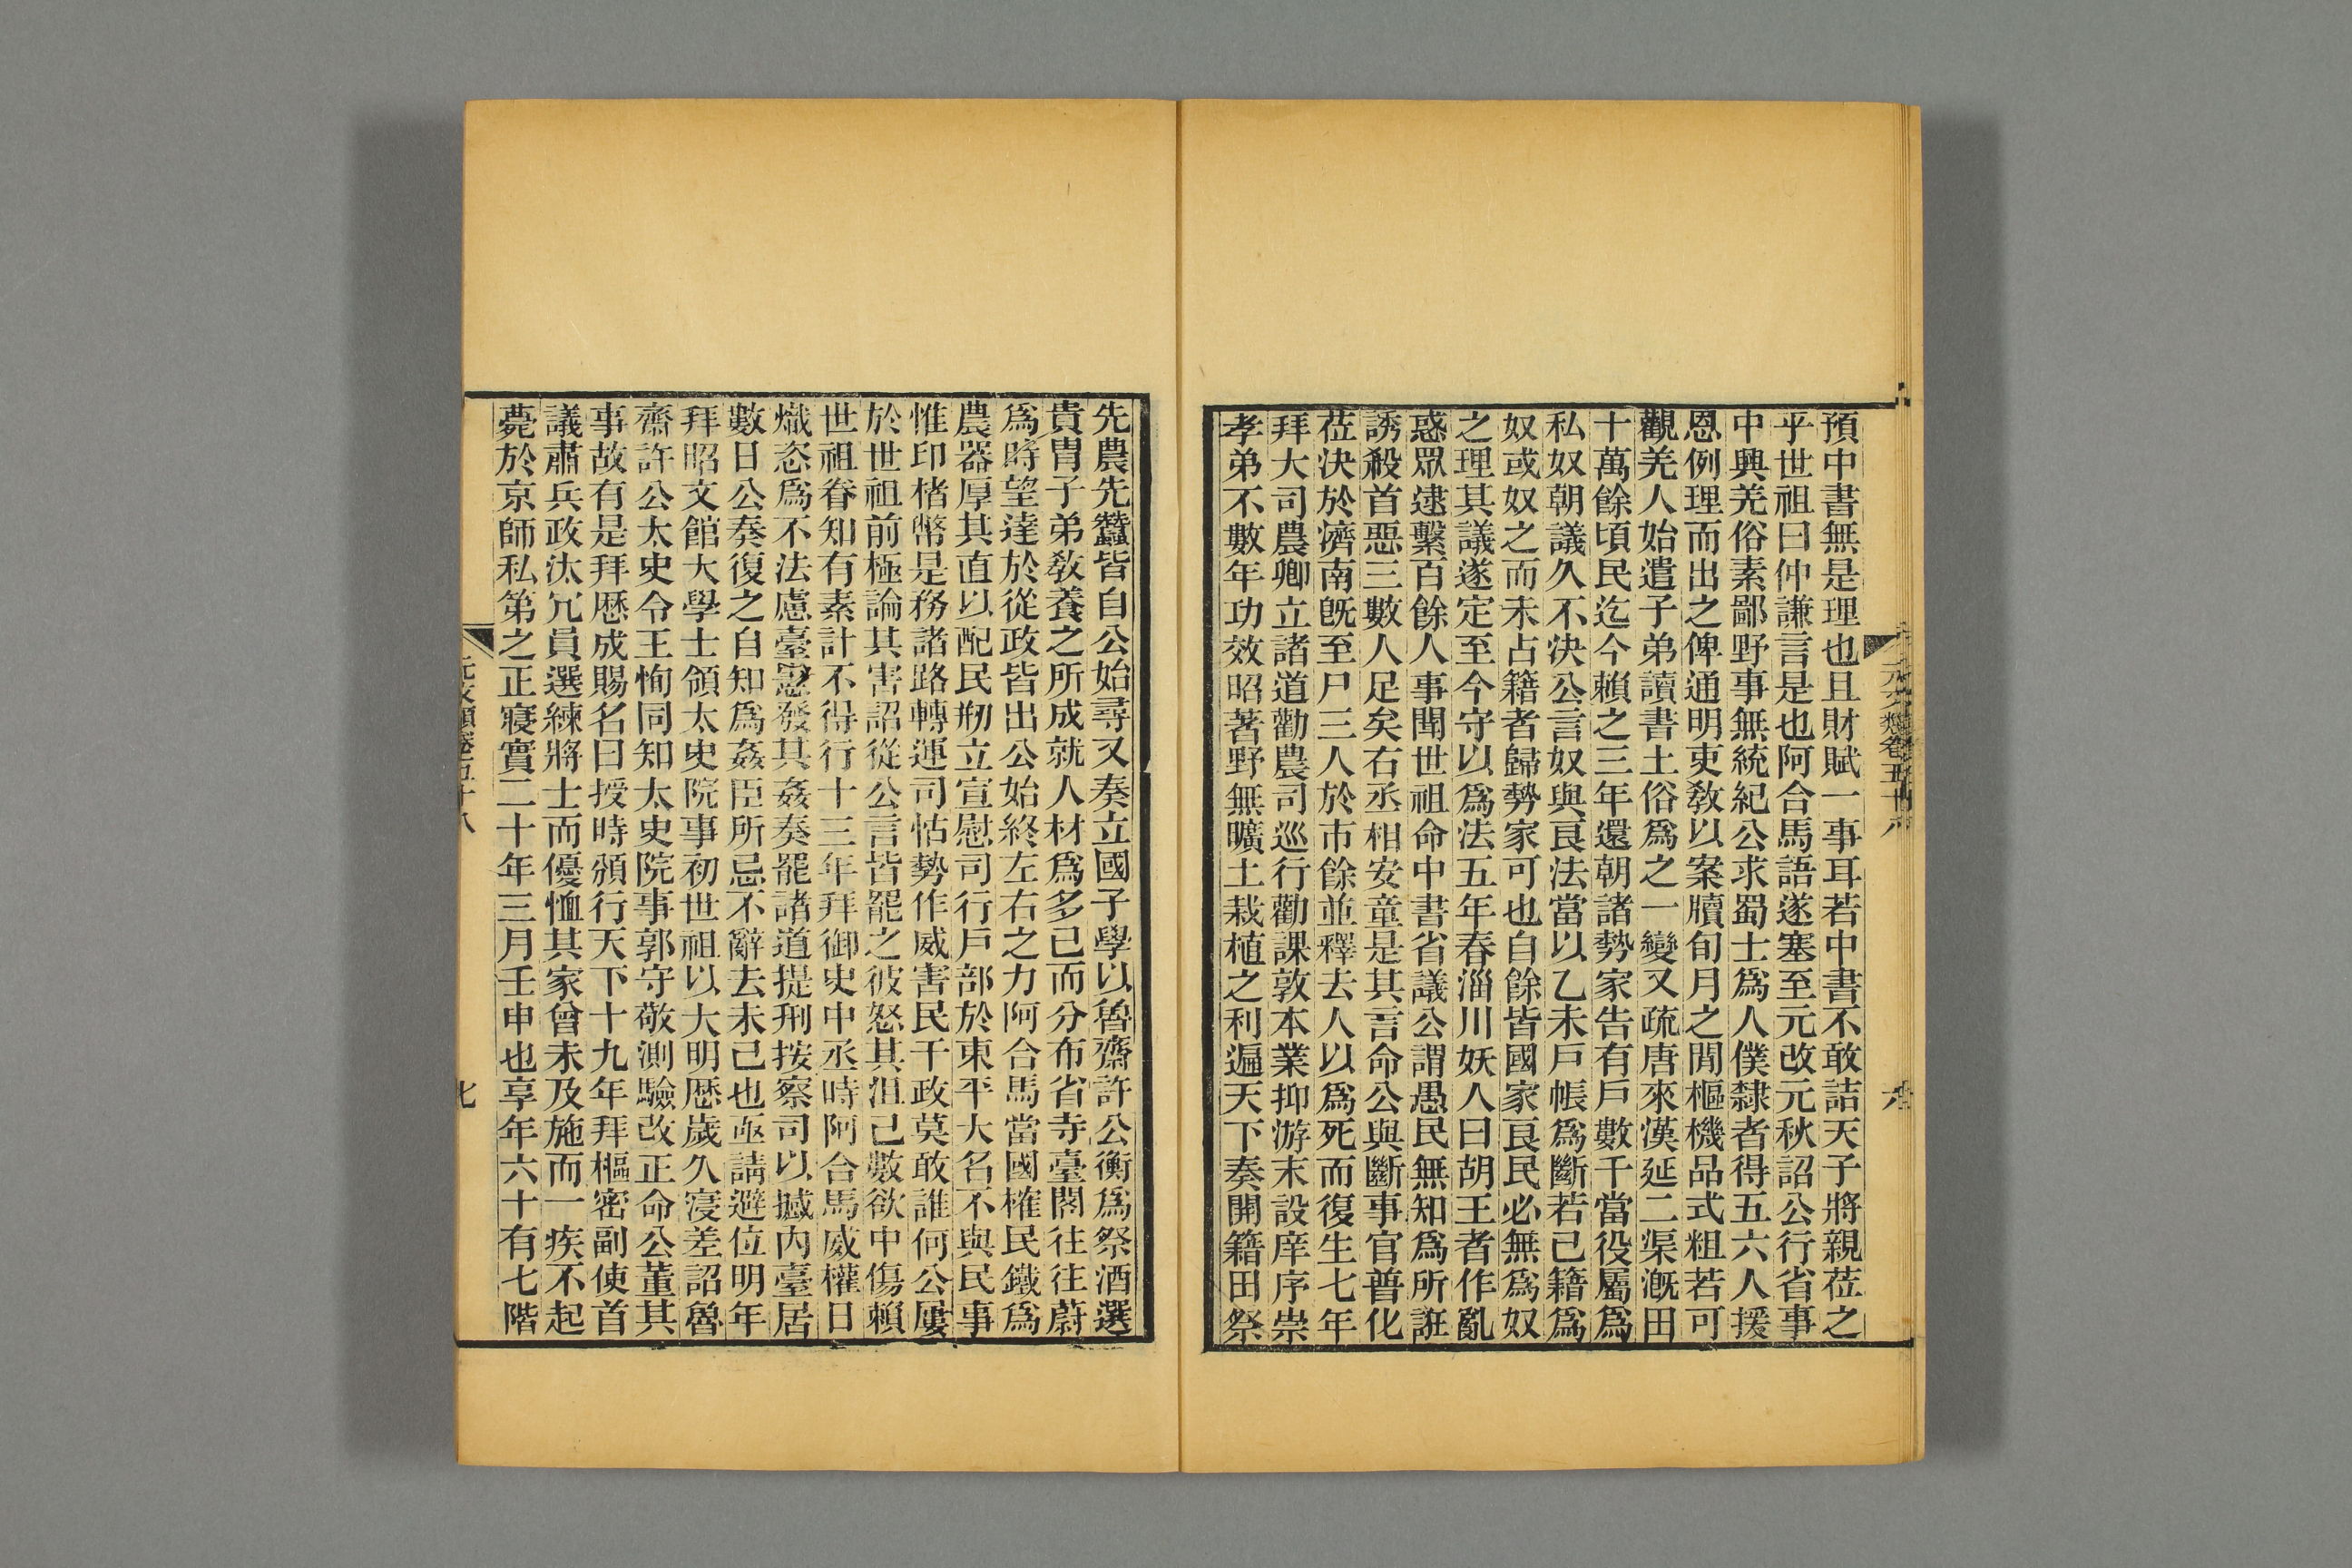 預中書無是理也且財賦一事耳若中書不敢詰天子將親莅之
乎世祖曰仲謙言是也阿合馬語遂塞至元改元秋詔公行省事
中興羌俗素鄙野事無統紀公求蜀士爲人僕隸者得五六人援
恩例理而出之俾通明吏敎以案牘旬月之閒樞機品式粗若可
觀羌人始遣子弟讀書土俗爲之一變又疏唐來漢延二渠漑田
十萬餘頃民迄今賴之三年還朝諸勢家告有戶數千當役屬爲
私奴朝議久不決公言奴與良法當以乙未戶帳爲斷若已籍爲
奴或奴之而未占籍者歸勢家可也自餘皆國家良民必無爲奴
之理其議遂定至今守以爲法五年春淄川妖人曰胡王者作亂
惑眾逮繫百餘人事聞世祖命中書省議公謂愚民無知爲所誑
誘殺首惡三數人足矣右丞相安童是其言命公與斷事官普化
莅決於濟南旣至尸三人於市餘並釋去人以爲死而復生七年
拜大司農卿立諸道勸農司巡行勸課敦本業抑游末設庠序崇
孝弟不數年功效昭著野無曠土栽植之利遍天下奏開籍田祭
元文類卷五十八
六
先農先蠶皆自公始尋又奏立國子學以魯齋許公衡爲祭酒選
貴胄子弟敎養之所成就人材爲多已而分布省寺臺閣往往蔚
爲時望達於從政皆出公始終左右之力阿合馬當國榷民鐵爲
農器厚其直以配民刱立宣慰司行戶部於東平大名不與民事
惟印楮幣是務諸路轉運司怙勢作威害民干政莫敢誰何公屢
於世祖前極論其害詔從公言皆罷之彼怒其沮己數欲中傷賴
世祖眷知有素計不得行十三年拜御史中丞時阿合馬威權日
熾恣爲不法慮臺憲發其姦奏罷諸道提刑按察司以撼內臺居
數日公奏復之自知爲姦臣所忌不辭去未已也亟請避位明年
拜昭文館大學士領太史院事初世祖以大明歷歲久寖差詔魯
齋許公太史令王恂同知太史院事郭守敬測驗改正命公董其
事故有是拜歷成賜名曰授時頒行天下十九年拜樞密副使首
議肅兵政汰冗員選練將士而優恤其家曾未及施而一疾不起
薨於京師私第之正寢實二十年三月壬申也享年六十有七階
元文類卷五十八
七